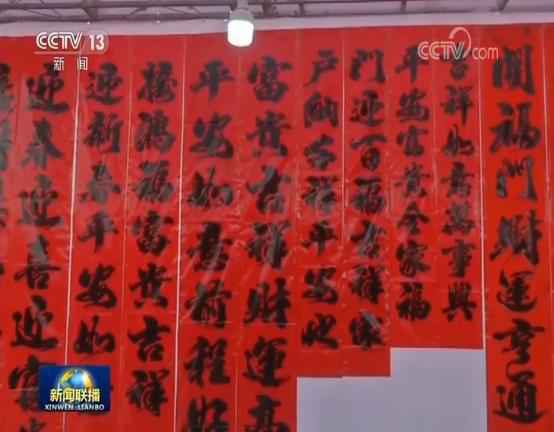 CCTV 13
新闻
CCTV.com
開福门财運亨通
吉祥如意萬事興
平安富贵全家福
门迎百福吉祥家
户纳吉祥平安地
富贵吉祥财運高
平安如意前程好
接鸿福富贵吉祥
迎新春平安如
迎春迎喜迎
新闻联播
XINWEN LIANBO